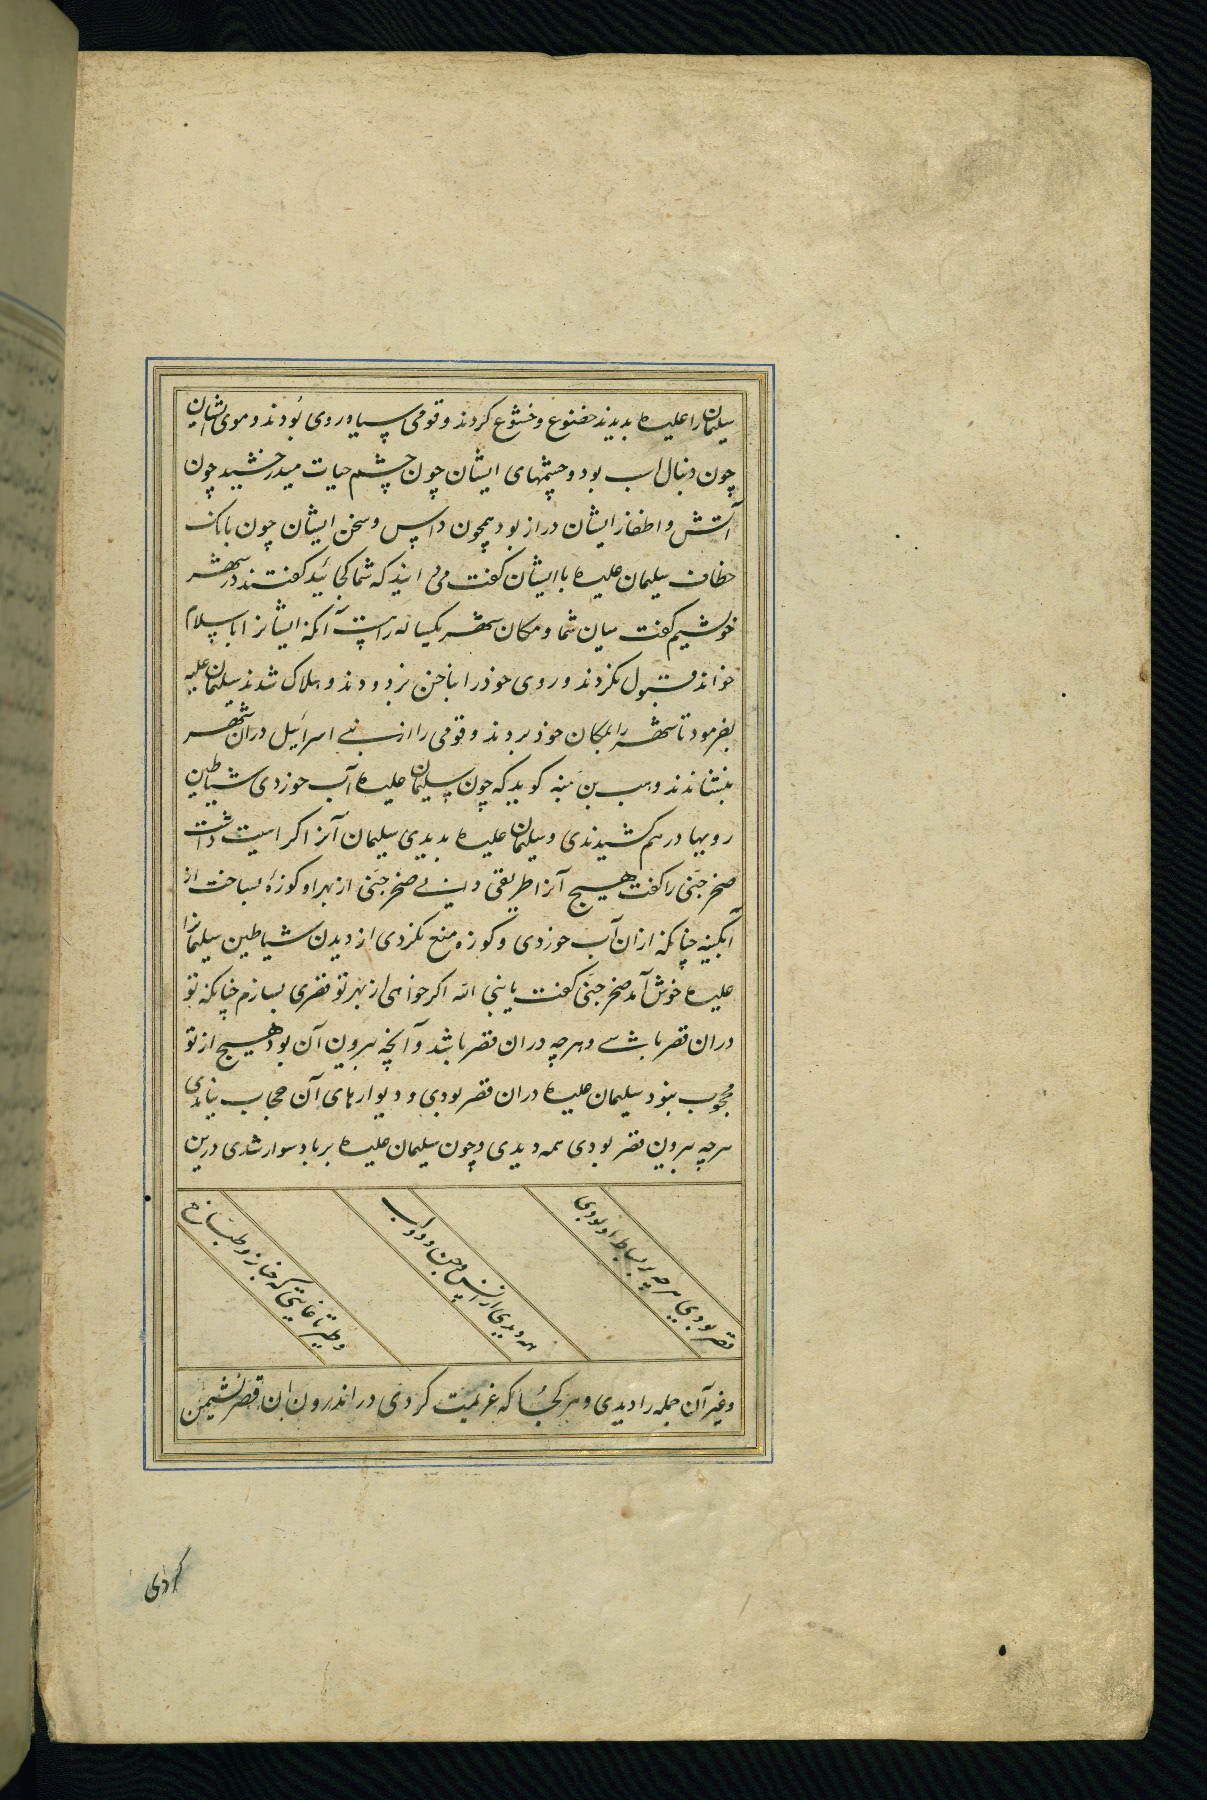 سلیمان را علیه بدیدند خضوع و خشوع کردند و قومی سیاه روی بودند و موی ایشان
چون دنبال اسب بود و چشمهای ایشان چون چشم حیات میدرخشید چون
آتش و اظفار ایشان دراز بود همچون داس و سخن ایشان چون بانک
خطاف سلیمان علیه با ایشان کفت که شما کجائید کفتند در شهر
خویشیم کفت میان شما و مکان شهر یکساله راهست آنکه ایشانرا با سلام
خواند قبول نکردند و روی خود را بناخن بردودند و هلاک شدند سلیمان علیه
بفرمود تا شهر را بمکان خود بردند و قومی را از بنی اسرائیل دران شهر
بنشاندند وهب بن منبه کوید که چون سلیمان علیه آب خوردی شیاطین
رویها درهم کشیدندی و سلیمان علیه بدیدی سلیمان آنرا کراهیت داشت
صخر جنی را کفت هیچ آنرا طریقی دانی صخر جنی از بهر او کوزهٔ بساخت از
آبکینه چنانکه ازان آب خوردی و کوزه منع نکردی از دیدن شیاطین سلیمانرا
علیه خوش آمد صخر جنی کفت یا نبی الله اکر خواهی از بهر تو قصری بسازم چنانکه تو
دران قصر باشی و هرچه دران قصر باشد و آنچه بیرون آن بود هیچ از تو
محجوب نبود سلیمان علیه دران قصر بودی و دیوارهای آن حجاب نیامدی
هرچه بیرون قصر بودی همه دیدی و چون سلیمان علیه بر باد سوار شدی درین
قصر بودی هرچه بر بساط او بودی
همه دیدی از انس و جن و دواب
و طیر تا غایتی که خباز و طباخ
و غیر آن جمله را دیدی و هر کجا که عزیمت کردی در اندرون آن قصر نشیمن
کردی